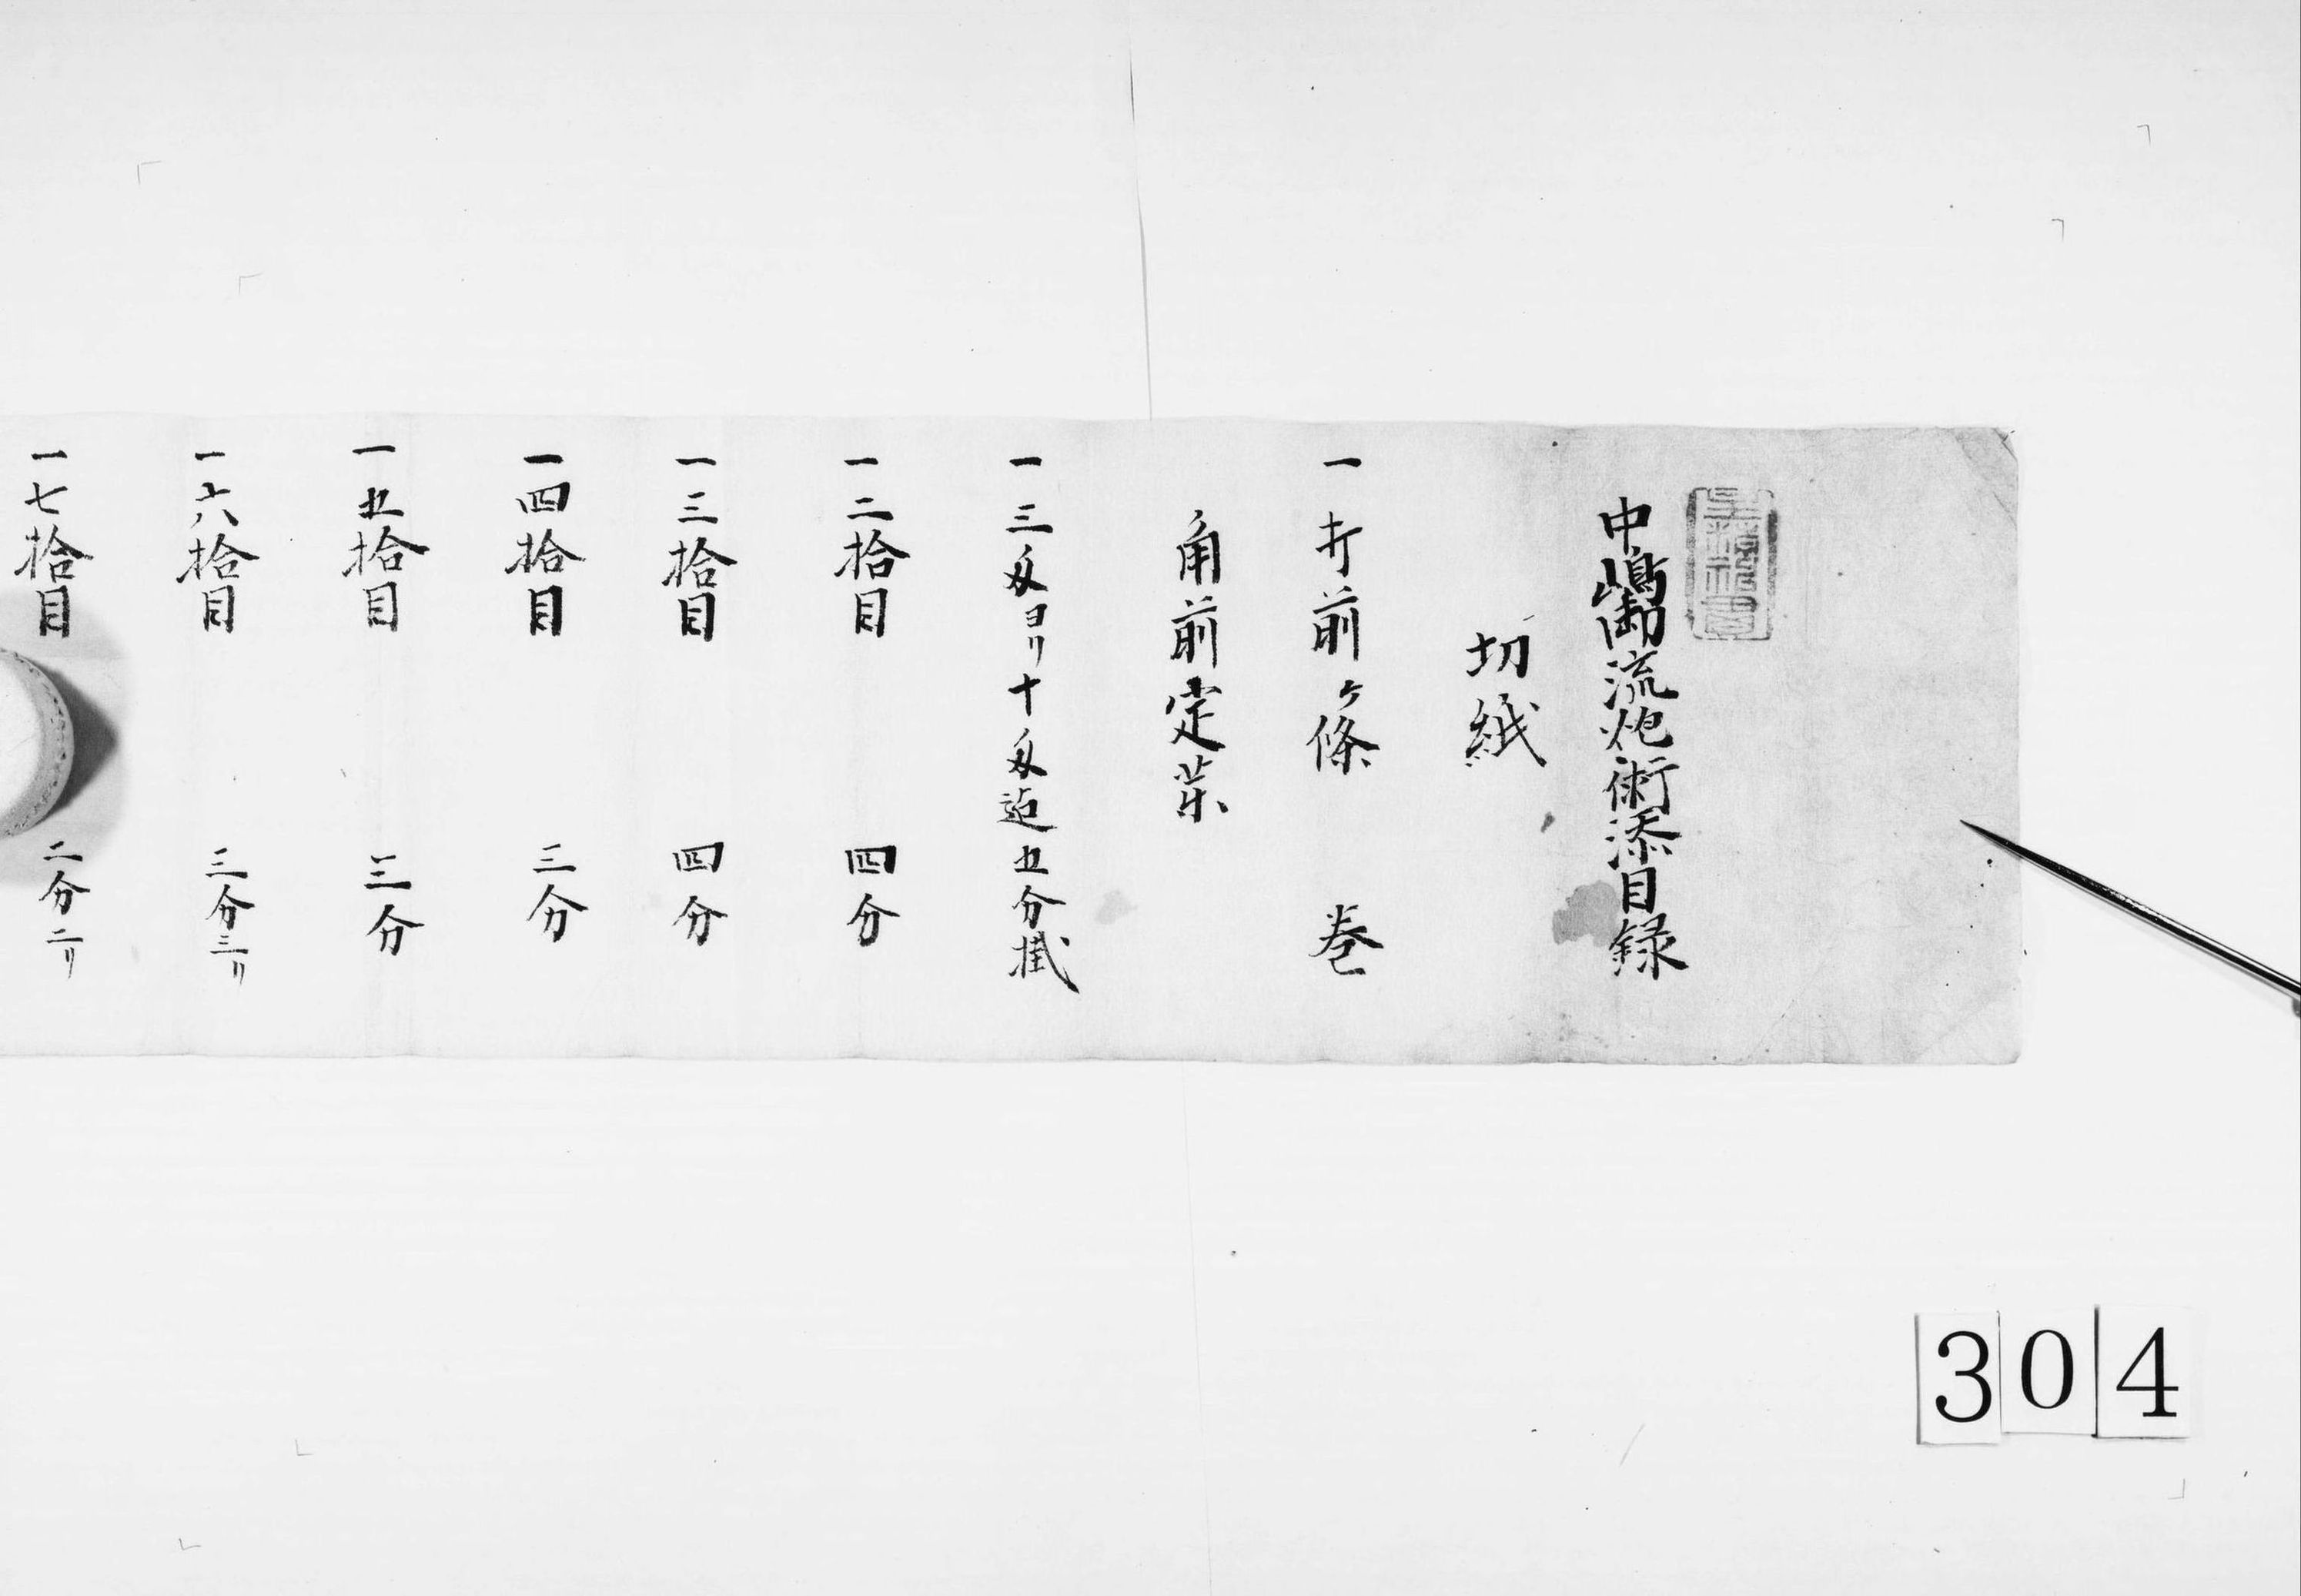 中嶋流炮術添目録
切紙
一 打前ヶ條 巻
角前定薬
一 三匁ヨリ十匁迠五分掛
一 二拾目 四分
一 三拾目 四分
一 四拾目 三分
一 五拾目 三分
一 六拾目 三分三リ
一 七拾目 二分二リ
304